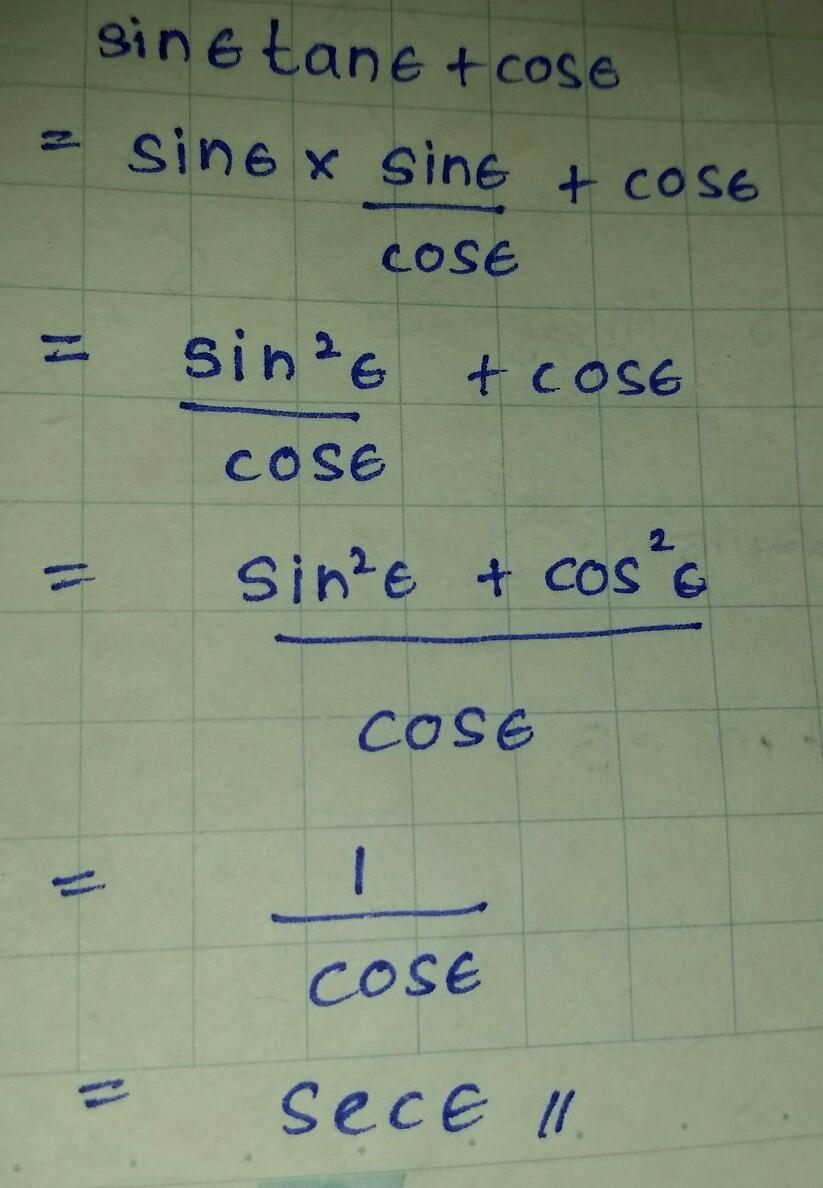 sinθ tanθ + cosθ
= sinθ × sinθ + cosθ
cosθ
= sin²θ + cosθ
cosθ
= sin²θ + cos²θ
cosθ
= 1
cosθ
= secθ //